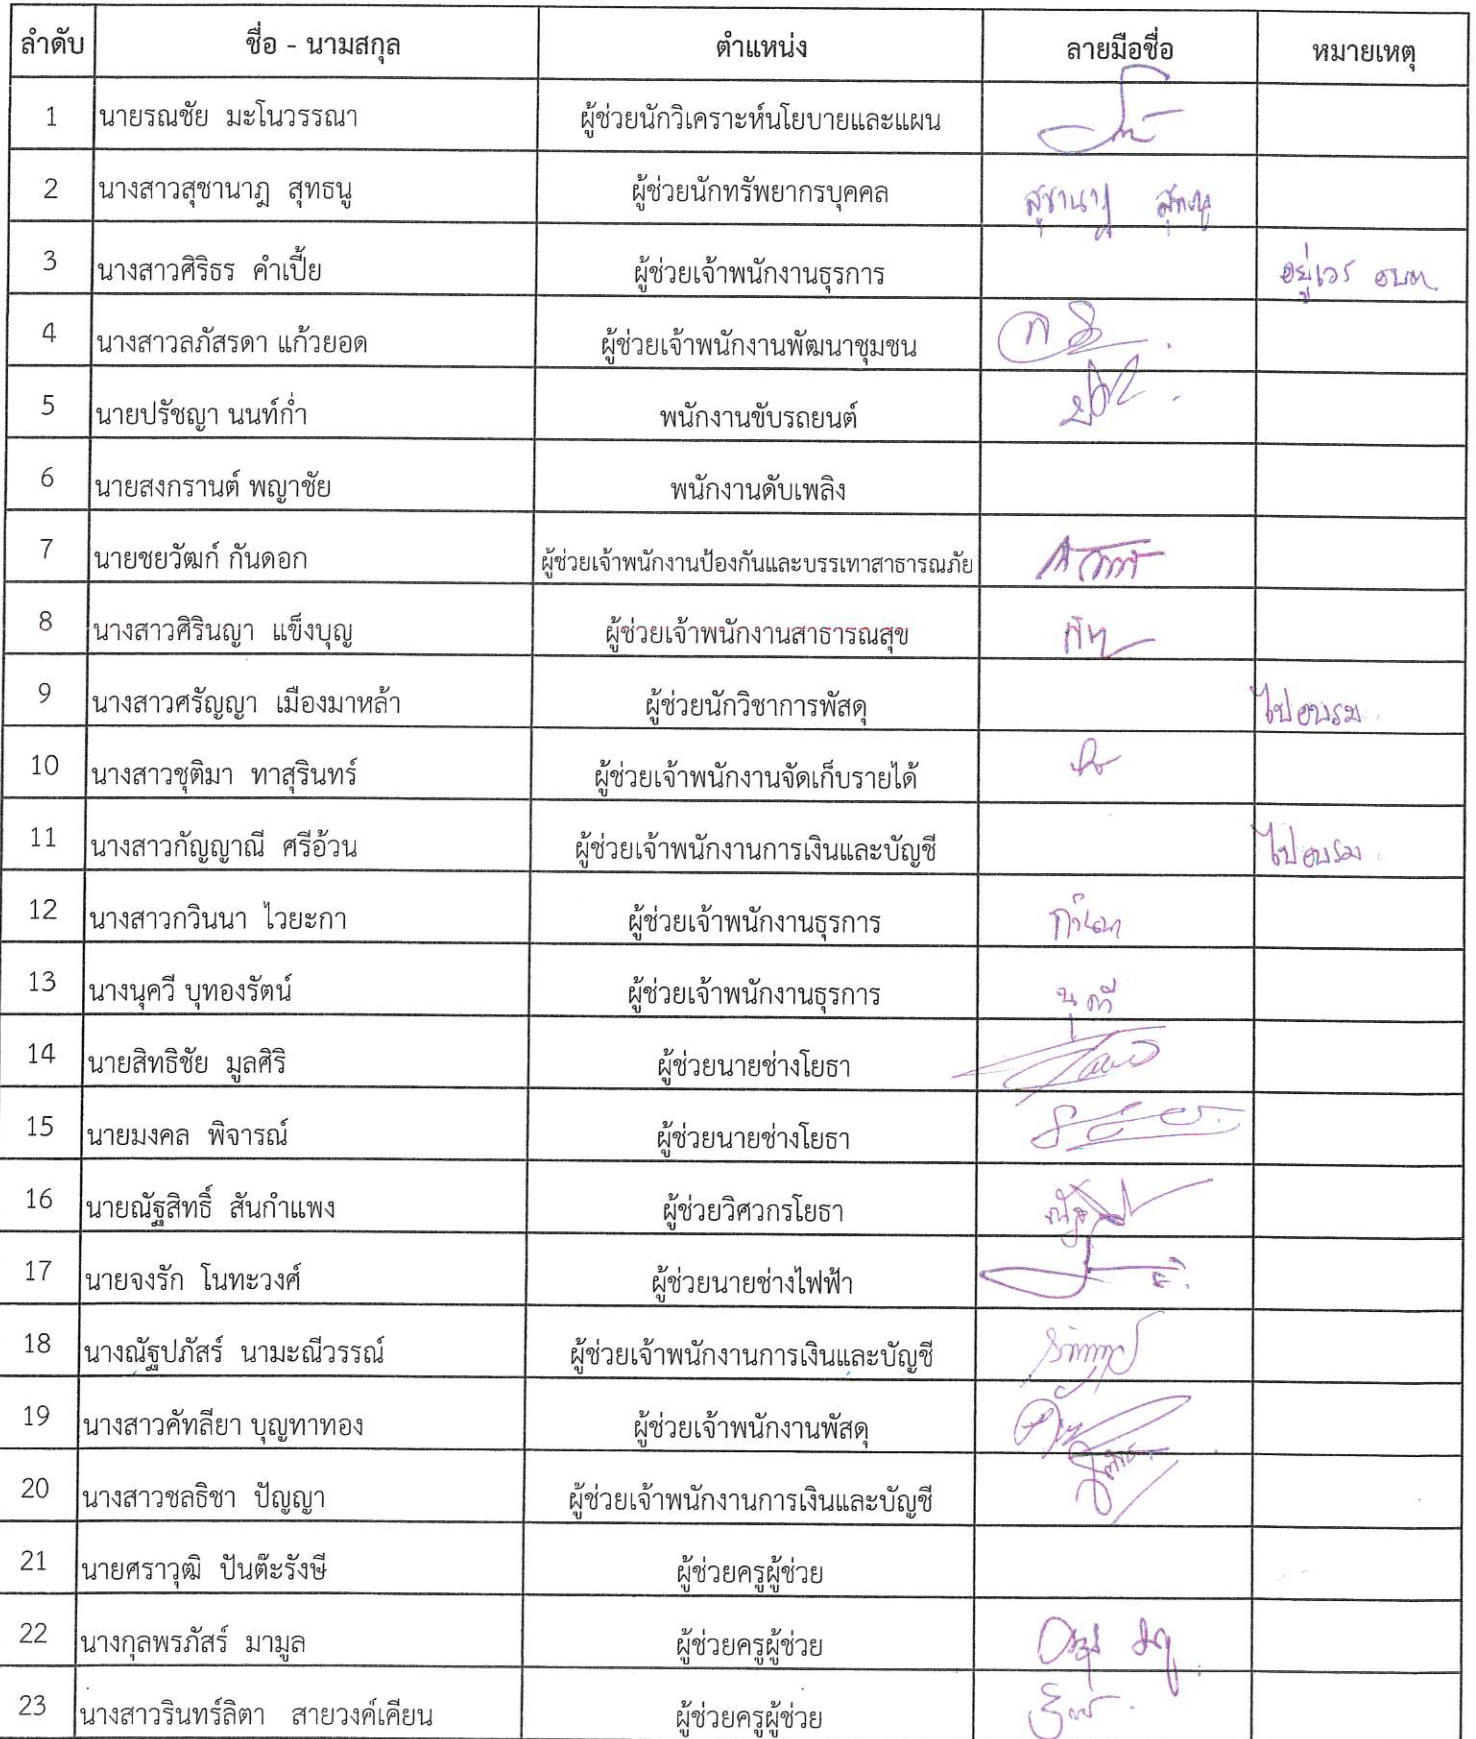 ลำดับ ชื่อ - นามสกุล ตำแหน่ง ลายมือชื่อ หมายเหตุ
1 นายรณชัย มะโนวรรณา ผู้ช่วยนักวิเคราะห์นโยบายและแผน
2 นางสาวสุชานาฎ สุทธนู ผู้ช่วยนักทรัพยากรบุคคล สุชานาฎ สุทธนู
3 นางสาวศิริธร คำเปี้ย ผู้ช่วยเจ้าพนักงานธุรการ อยู่เวร อบต.
4 นางสาวลภัสรดา แก้วยอด ผู้ช่วยเจ้าพนักงานพัฒนาชุมชน
5 นายปรัชญา นนท์ก่ำ พนักงานขับรถยนต์
6 นายสงกรานต์ พญาชัย พนักงานดับเพลิง
7 นายชยวัฒก์ กันดอก ผู้ช่วยเจ้าพนักงานป้องกันและบรรเทาสาธารณภัย
8 นางสาวศิรินญา แข็งบุญ ผู้ช่วยเจ้าพนักงานสาธารณสุข
9 นางสาวศรัญญา เมืองมาหล้า ผู้ช่วยนักวิชาการพัสดุ ไปอบรม
10 นางสาวชุติมา ทาสุรินทร์ ผู้ช่วยเจ้าพนักงานจัดเก็บรายได้
11 นางสาวกัญญาณี ศรีอ้วน ผู้ช่วยเจ้าพนักงานการเงินและบัญชี ไปอบรม
12 นางสาวกวินนา ไวยะกา ผู้ช่วยเจ้าพนักงานธุรการ
13 นางนุควี บุทองรัตน์ ผู้ช่วยเจ้าพนักงานธุรการ นุควี
14 นายสิทธิชัย มูลศิริ ผู้ช่วยนายช่างโยธา
15 นายมงคล พิจารณ์ ผู้ช่วยนายช่างโยธา
16 นายณัฐสิทธิ์ สันกำแพง ผู้ช่วยวิศวกรโยธา
17 นายจงรัก โนทะวงศ์ ผู้ช่วยนายช่างไฟฟ้า
18 นางณัฐปภัสร์ นามะณีวรรณ์ ผู้ช่วยเจ้าพนักงานการเงินและบัญชี
19 นางสาวคัทลียา บุญทาทอง ผู้ช่วยเจ้าพนักงานพัสดุ
20 นางสาวชลธิชา ปัญญา ผู้ช่วยเจ้าพนักงานการเงินและบัญชี
21 นายศราวุฒิ ปันต๊ะรังษี ผู้ช่วยครูผู้ช่วย
22 นางกุลพรภัสร์ มามูล ผู้ช่วยครูผู้ช่วย
23 นางสาวรินทร์ลิตา สายวงค์เคียน ผู้ช่วยครูผู้ช่วย